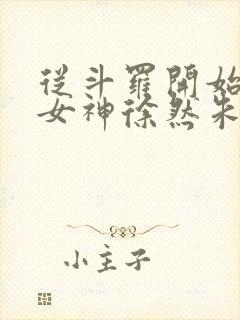 從斗羅開始
女神徐然朱
小主子